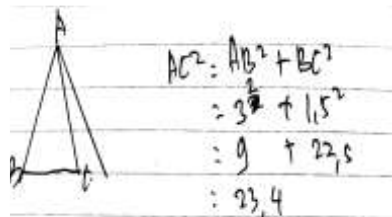 A
AC² = AB² + BC²
= 3² + 1,5²
= 9 + 22,5
= 23,4
B C